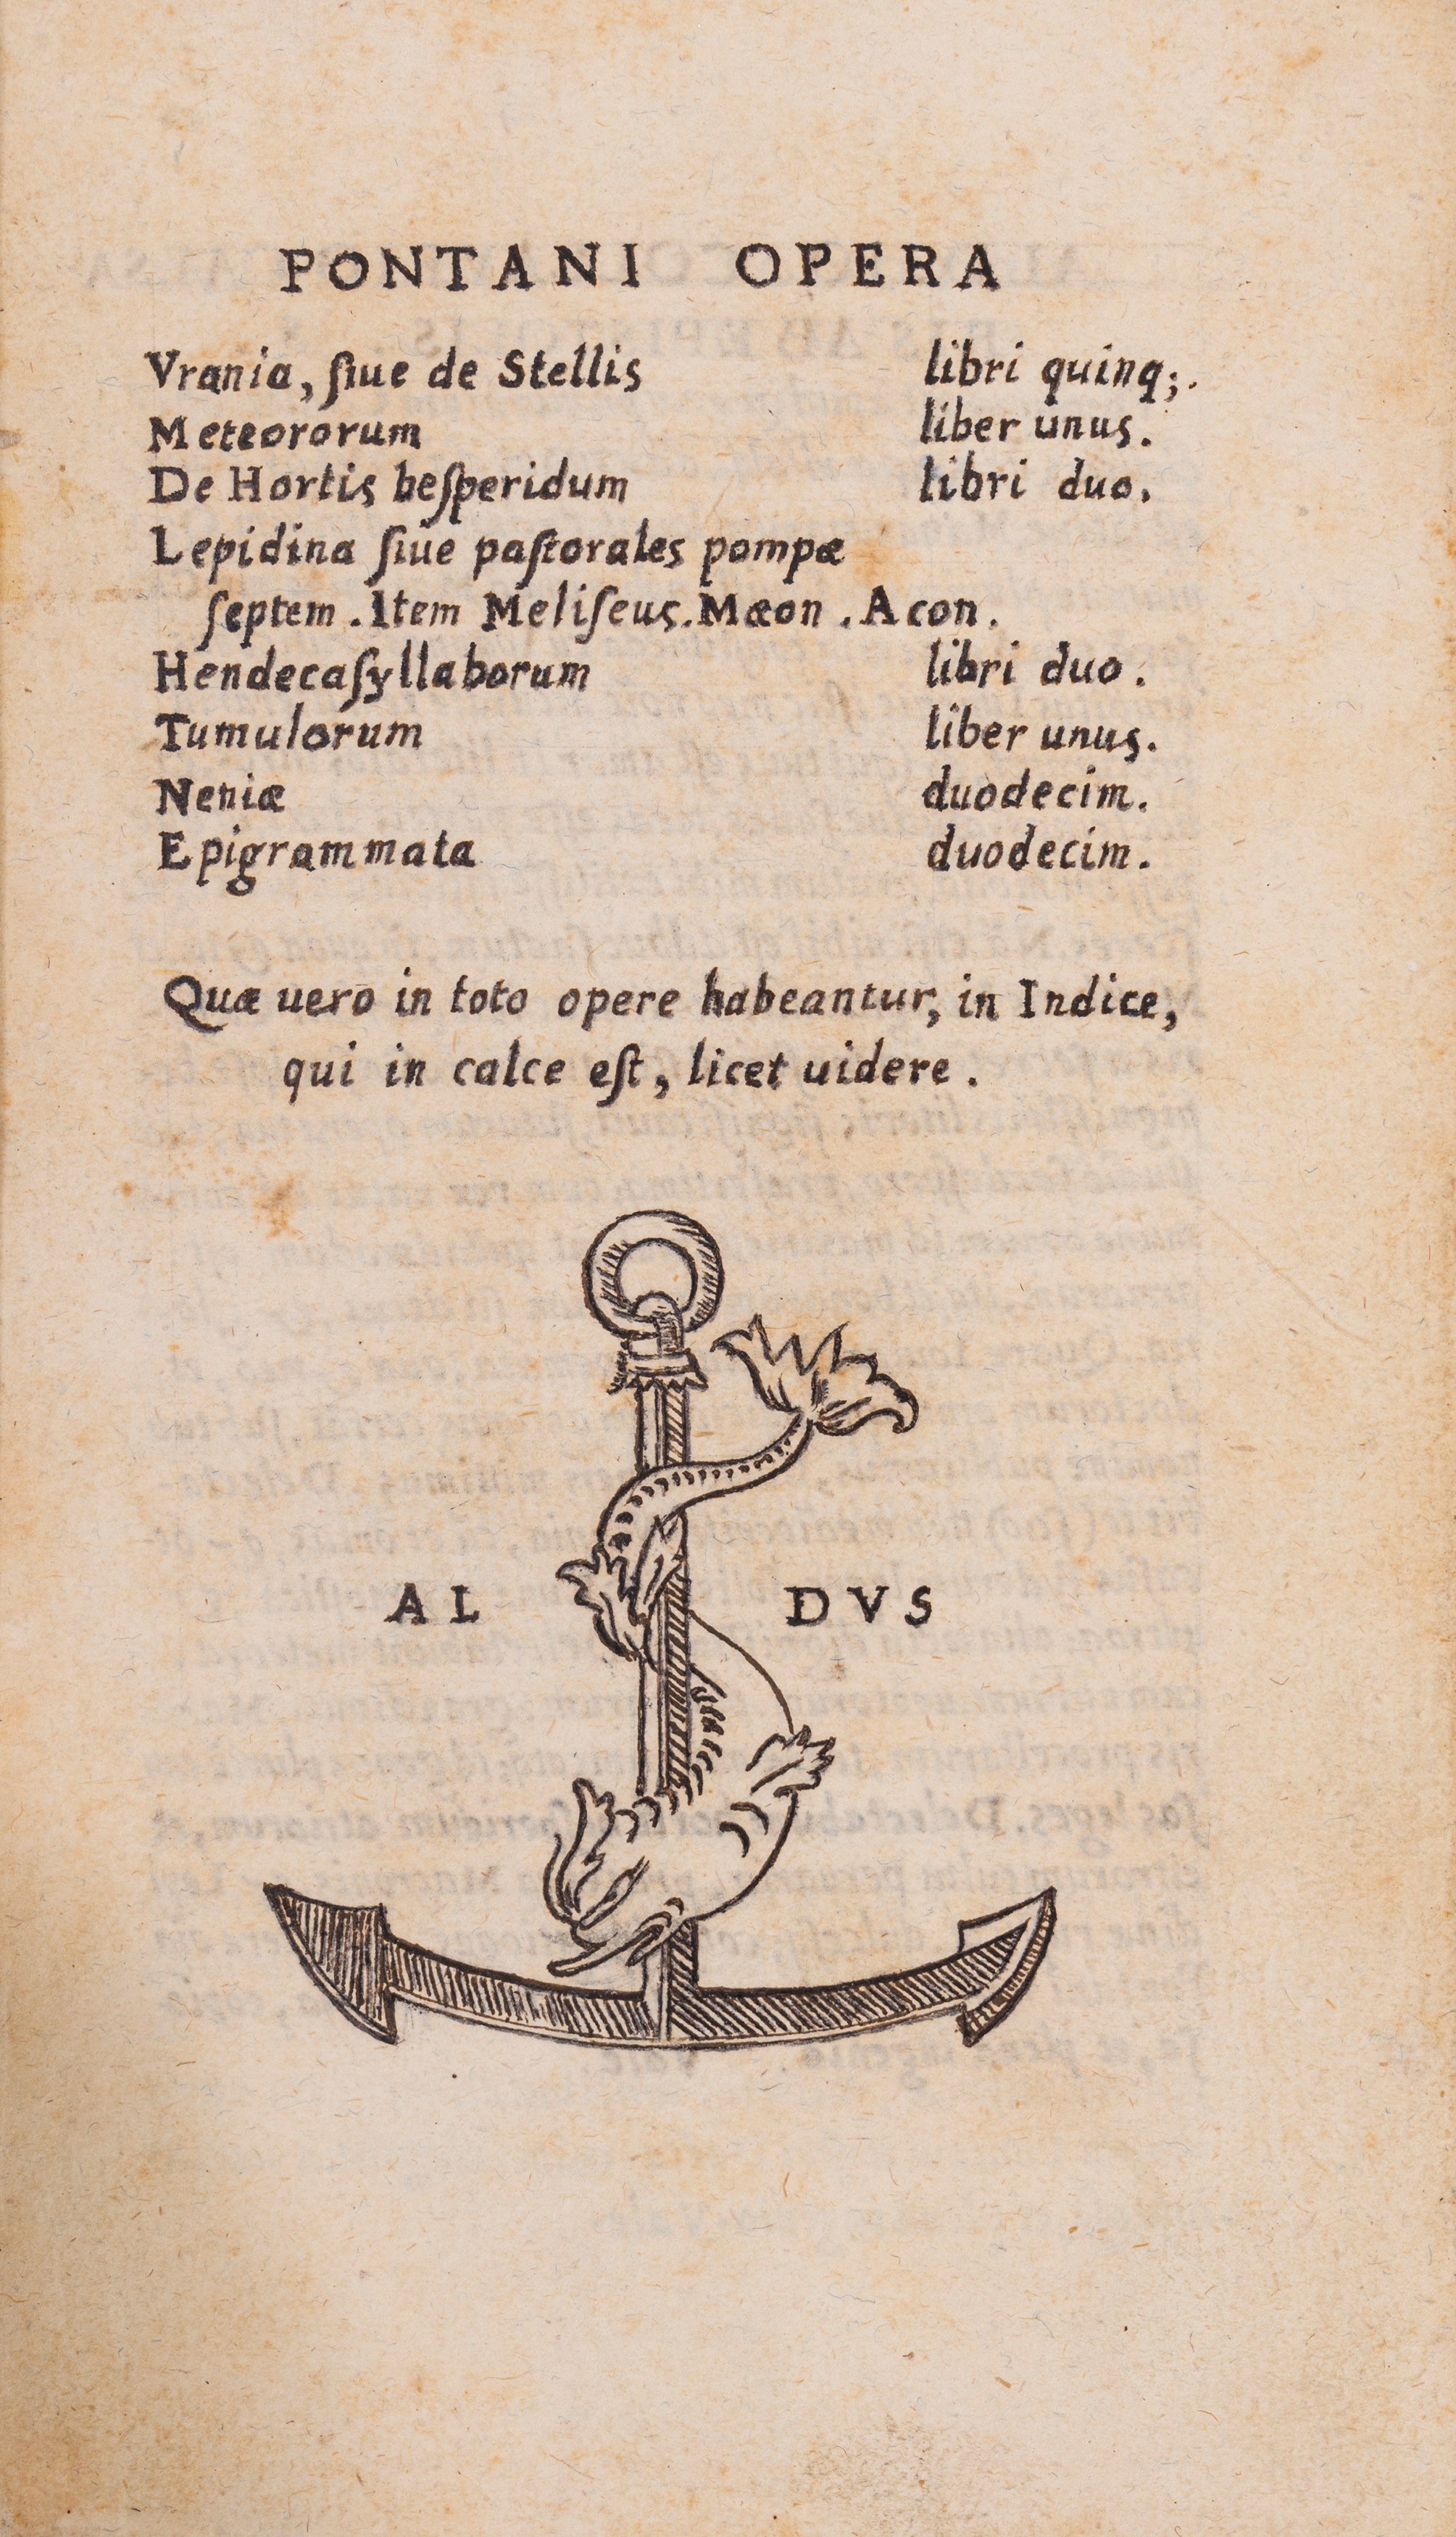 PONTANI OPERA
Vrania, ſiue de Stellis libri quinq;.
Meteororum liber unus.
De Hortis heſperidum libri duo.
Lepidina ſiue paſtorales pompæ
ſeptem. Item Meliſeus. Mæon. Acon.
Hendecaſyllaborum libri duo.
Tumulorum liber unus.
Neniæ duodecim.
Epigrammata duodecim.
Quæ uero in toto opere habeantur, in Indice,
qui in calce eſt, licet uidere.
AL DVS